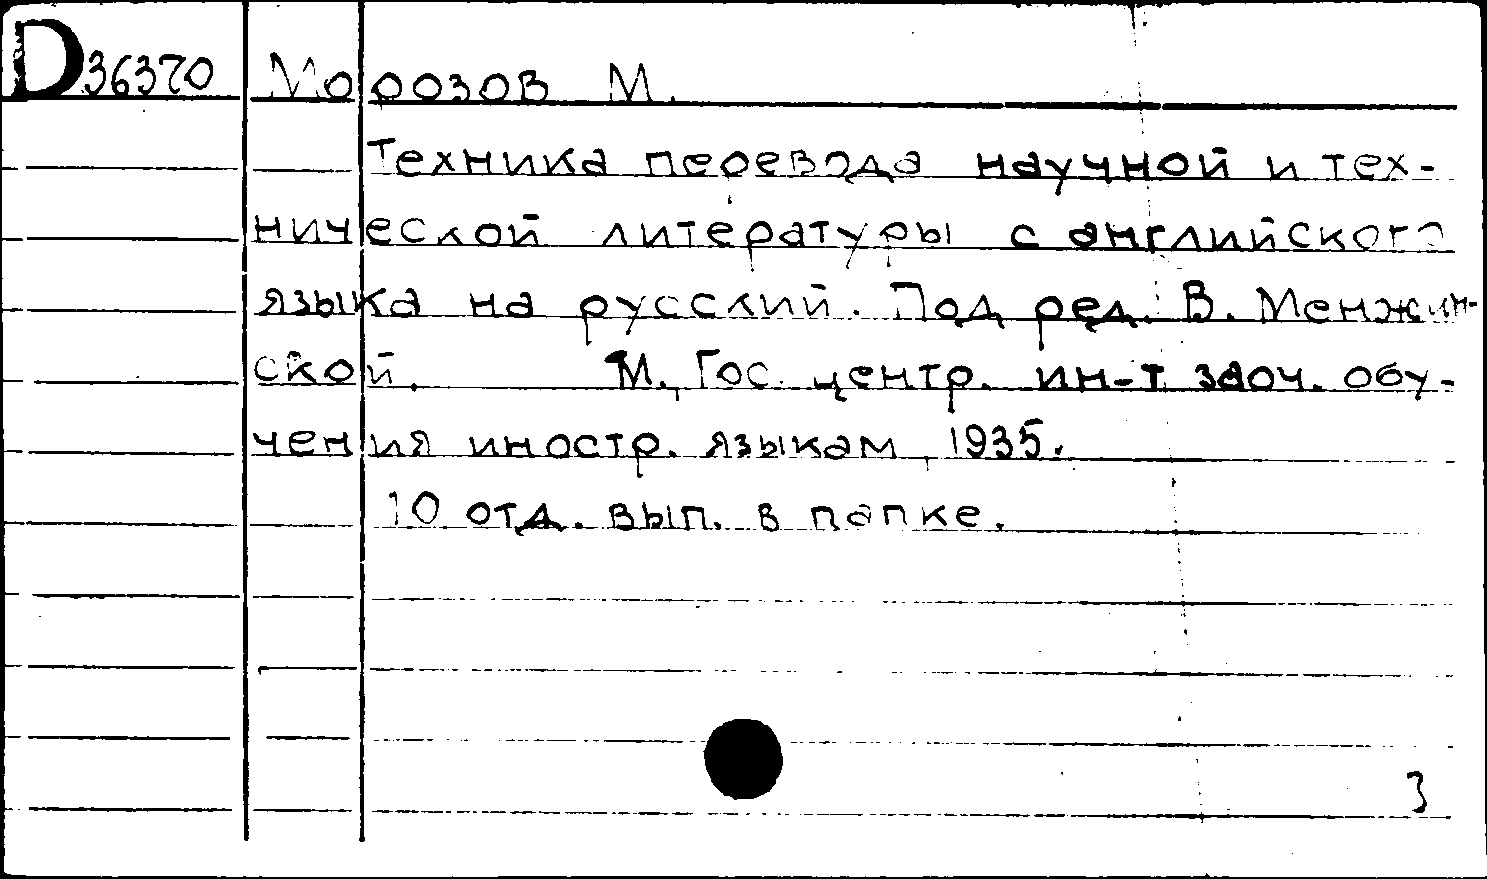 D36370 Морозов М.
Техника перевода научной и тех-
нической литературы с английского
языка на русский. Под ред. В. Менжин-
ской. М., Гос. центр. ин-т заоч. обу-
чения иностр. языкам, 1935.
10 отд. вып. в папке.
3